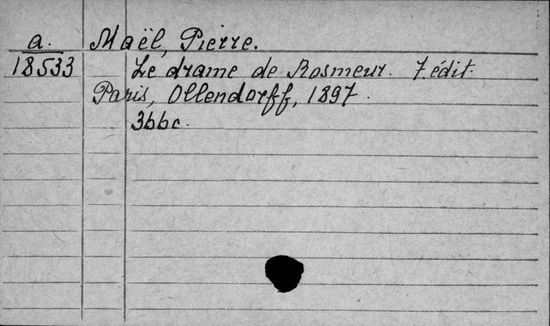 a. Maël, Pierre.
18533 Le drame de Rosmeur. 7 édit.
Paris, Ollendorff, 1897.
366c.